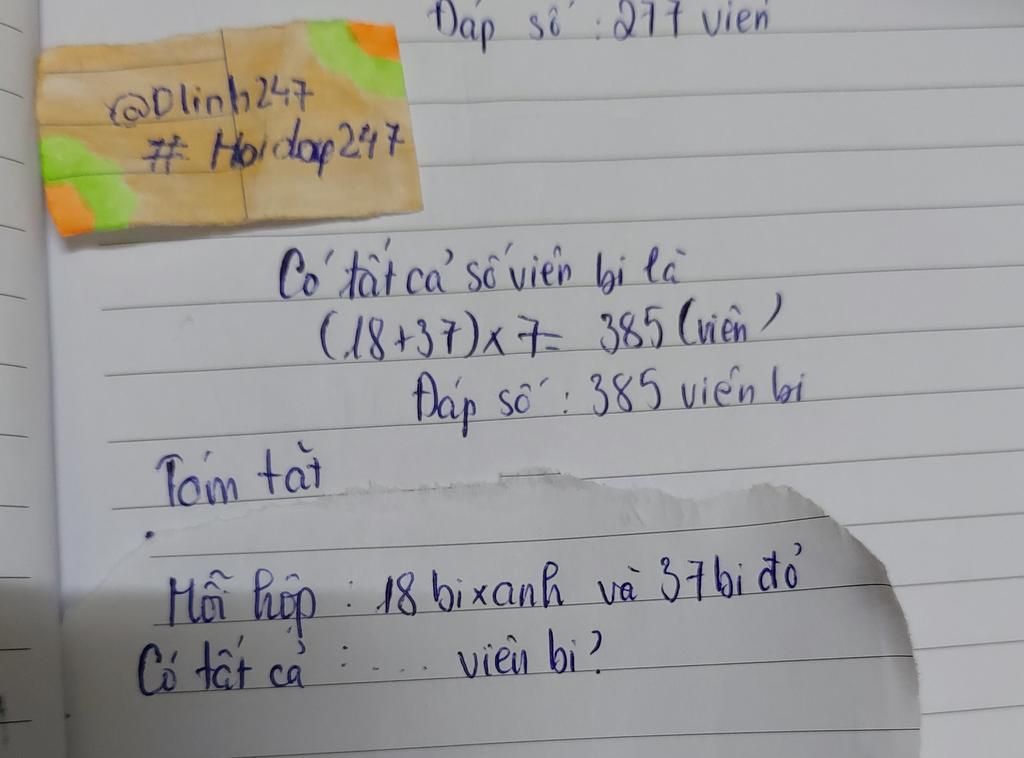 Đáp số : 277 viên
@Dlinh247
# Hoidap247
Có tất cả số viên bi là
(18+37)x 7= 385 (viên)
Đáp số : 385 viên bi
Tóm tắt
Mỗi hộp : 18 bi xanh và 37 bi đỏ
Có tất cả : .... viên bi?